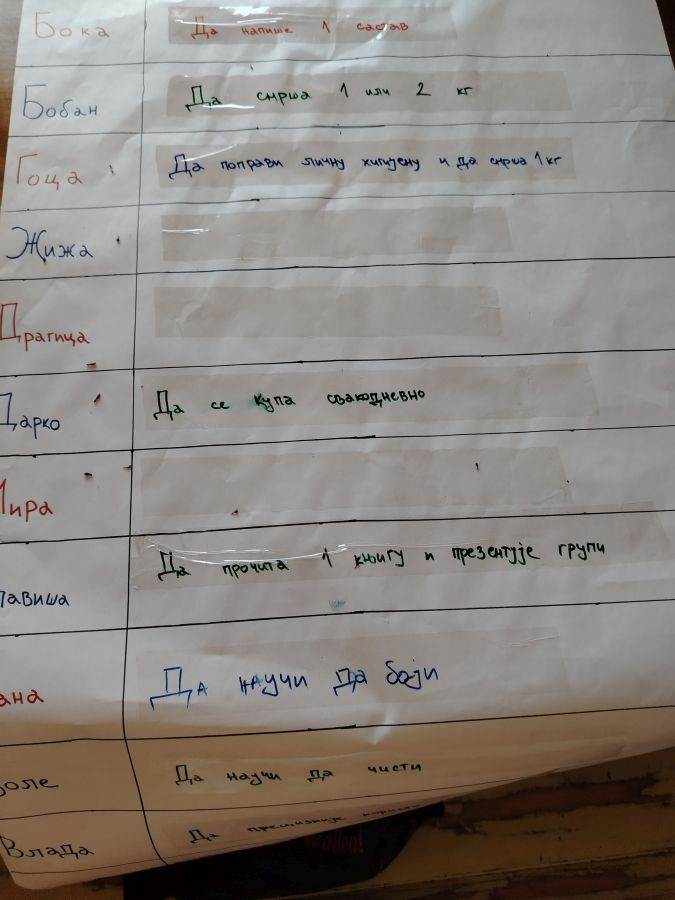 Бока Да напише 1 састав
Бобан Да смрша 1 или 2 кг
Гоца Да поправи личну хигијену и да смрша 1 кг
Жижа
Драгица
Дарко Да се купа свакодневно
Мира
лавиша Да прочита 1 књигу и презентује групи
ана Да научи да боји
оле Да научи да чисти
Влада Да
wollen!